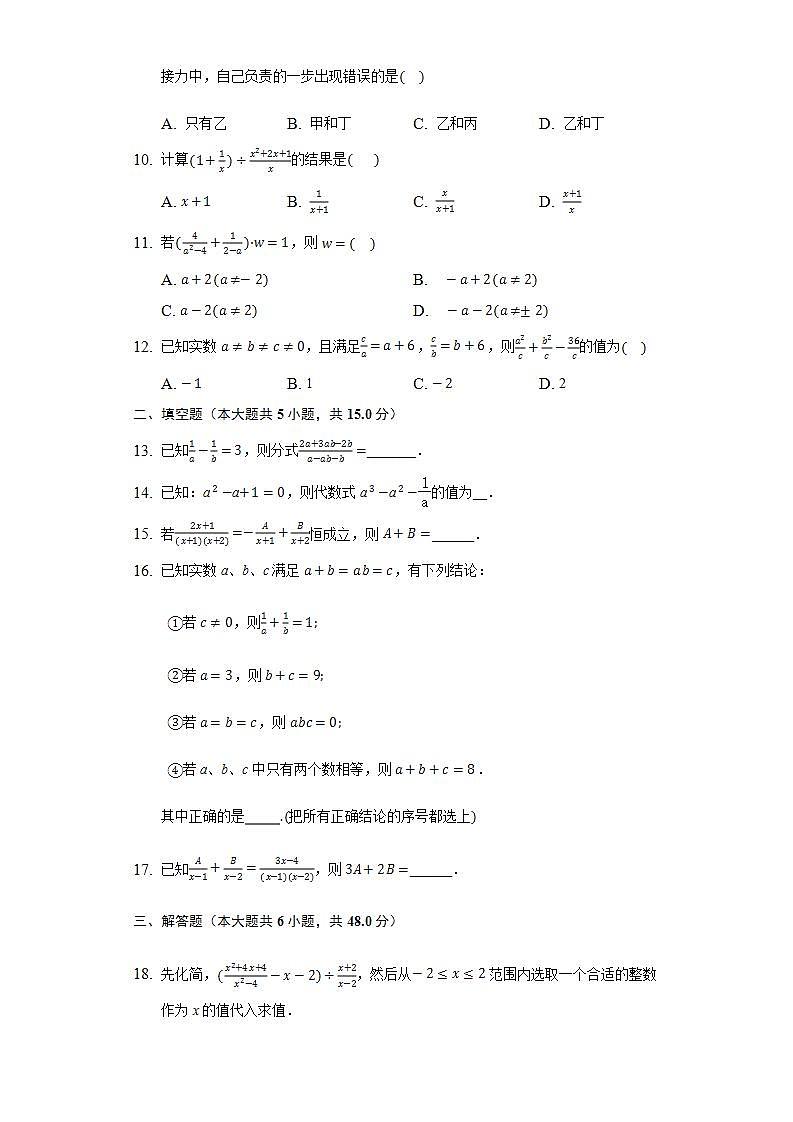 接力中，自己负责的一步出现错误的是(    )
A. 只有乙    B. 甲和丁    C. 乙和丙    D. 乙和丁
10. 计算(1+1/x)÷(x²+2x+1)/x的结果是(    )
A. x+1    B. 1/(x+1)    C. x/(x+1)    D. (x+1)/x
11. 若(4/(a²−4)+1/(2−a))·w=1，则 w=(    )
A. a+2(a≠−2)    B. −a+2(a≠2)
C. a−2(a≠2)    D. −a−2(a≠±2)
12. 已知实数 a≠b≠c≠0，且满足c/a=a+6，c/b=b+6，则a²/c+b²/c−36/c的值为(    )
A. −1    B. 1    C. −2    D. 2
二、填空题（本大题共 5 小题，共 15.0 分）
13. 已知1/a−1/b=3，则分式(2a+3ab−2b)/(a−ab−b)=______．
14. 已知：a²−a+1=0，则代数式 a³−a²−1/a的值为__．
15. 若(2x+1)/((x+1)(x+2))=−A/(x+1)+B/(x+2)恒成立，则 A+B=______．
16. 已知实数 a、b、c 满足 a+b=ab=c，有下列结论：
①若 c≠0，则1/a+1/b=1；
②若 a=3，则 b+c=9；
③若 a=b=c，则 abc=0；
④若 a、b、c 中只有两个数相等，则 a+b+c=8．
其中正确的是_____.(把所有正确结论的序号都选上)
17. 已知A/(x−1)+B/(x−2)=(3x−4)/((x−1)(x−2))，则 3A+2B=______．
三、解答题（本大题共 6 小题，共 48.0 分）
18. 先化简，((x²+4x+4)/(x²−4)−x−2)÷(x+2)/(x−2)，然后从−2≤x≤2 范围内选取一个合适的整数
作为 x 的值代入求值．